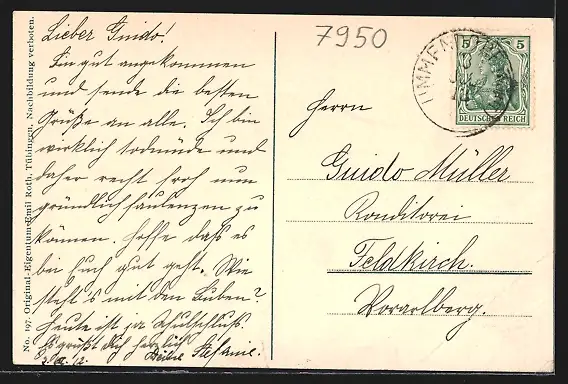 Lieber Guido!
Bin gut angekommen
und sende die besten
Grüße an alle. Ich bin
wirklich todmüde und
daher recht froh nun
gründlich faulenzen zu
können. Hoffe daß es
bei Euch gut geht. Wie
steht's mit den Buben?
Heute ist ja Schulschluß.
Es grüßt Dich herzlich
Deine Stefanie.
No. 197. Original-Eigentum Emil Roth, Tübingen. Nachbildung verboten.
7950
5 5
DEUTSCHES REICH
Herrn
Guido Müller
Konditorei
Feldkirch.
Vorarlberg.